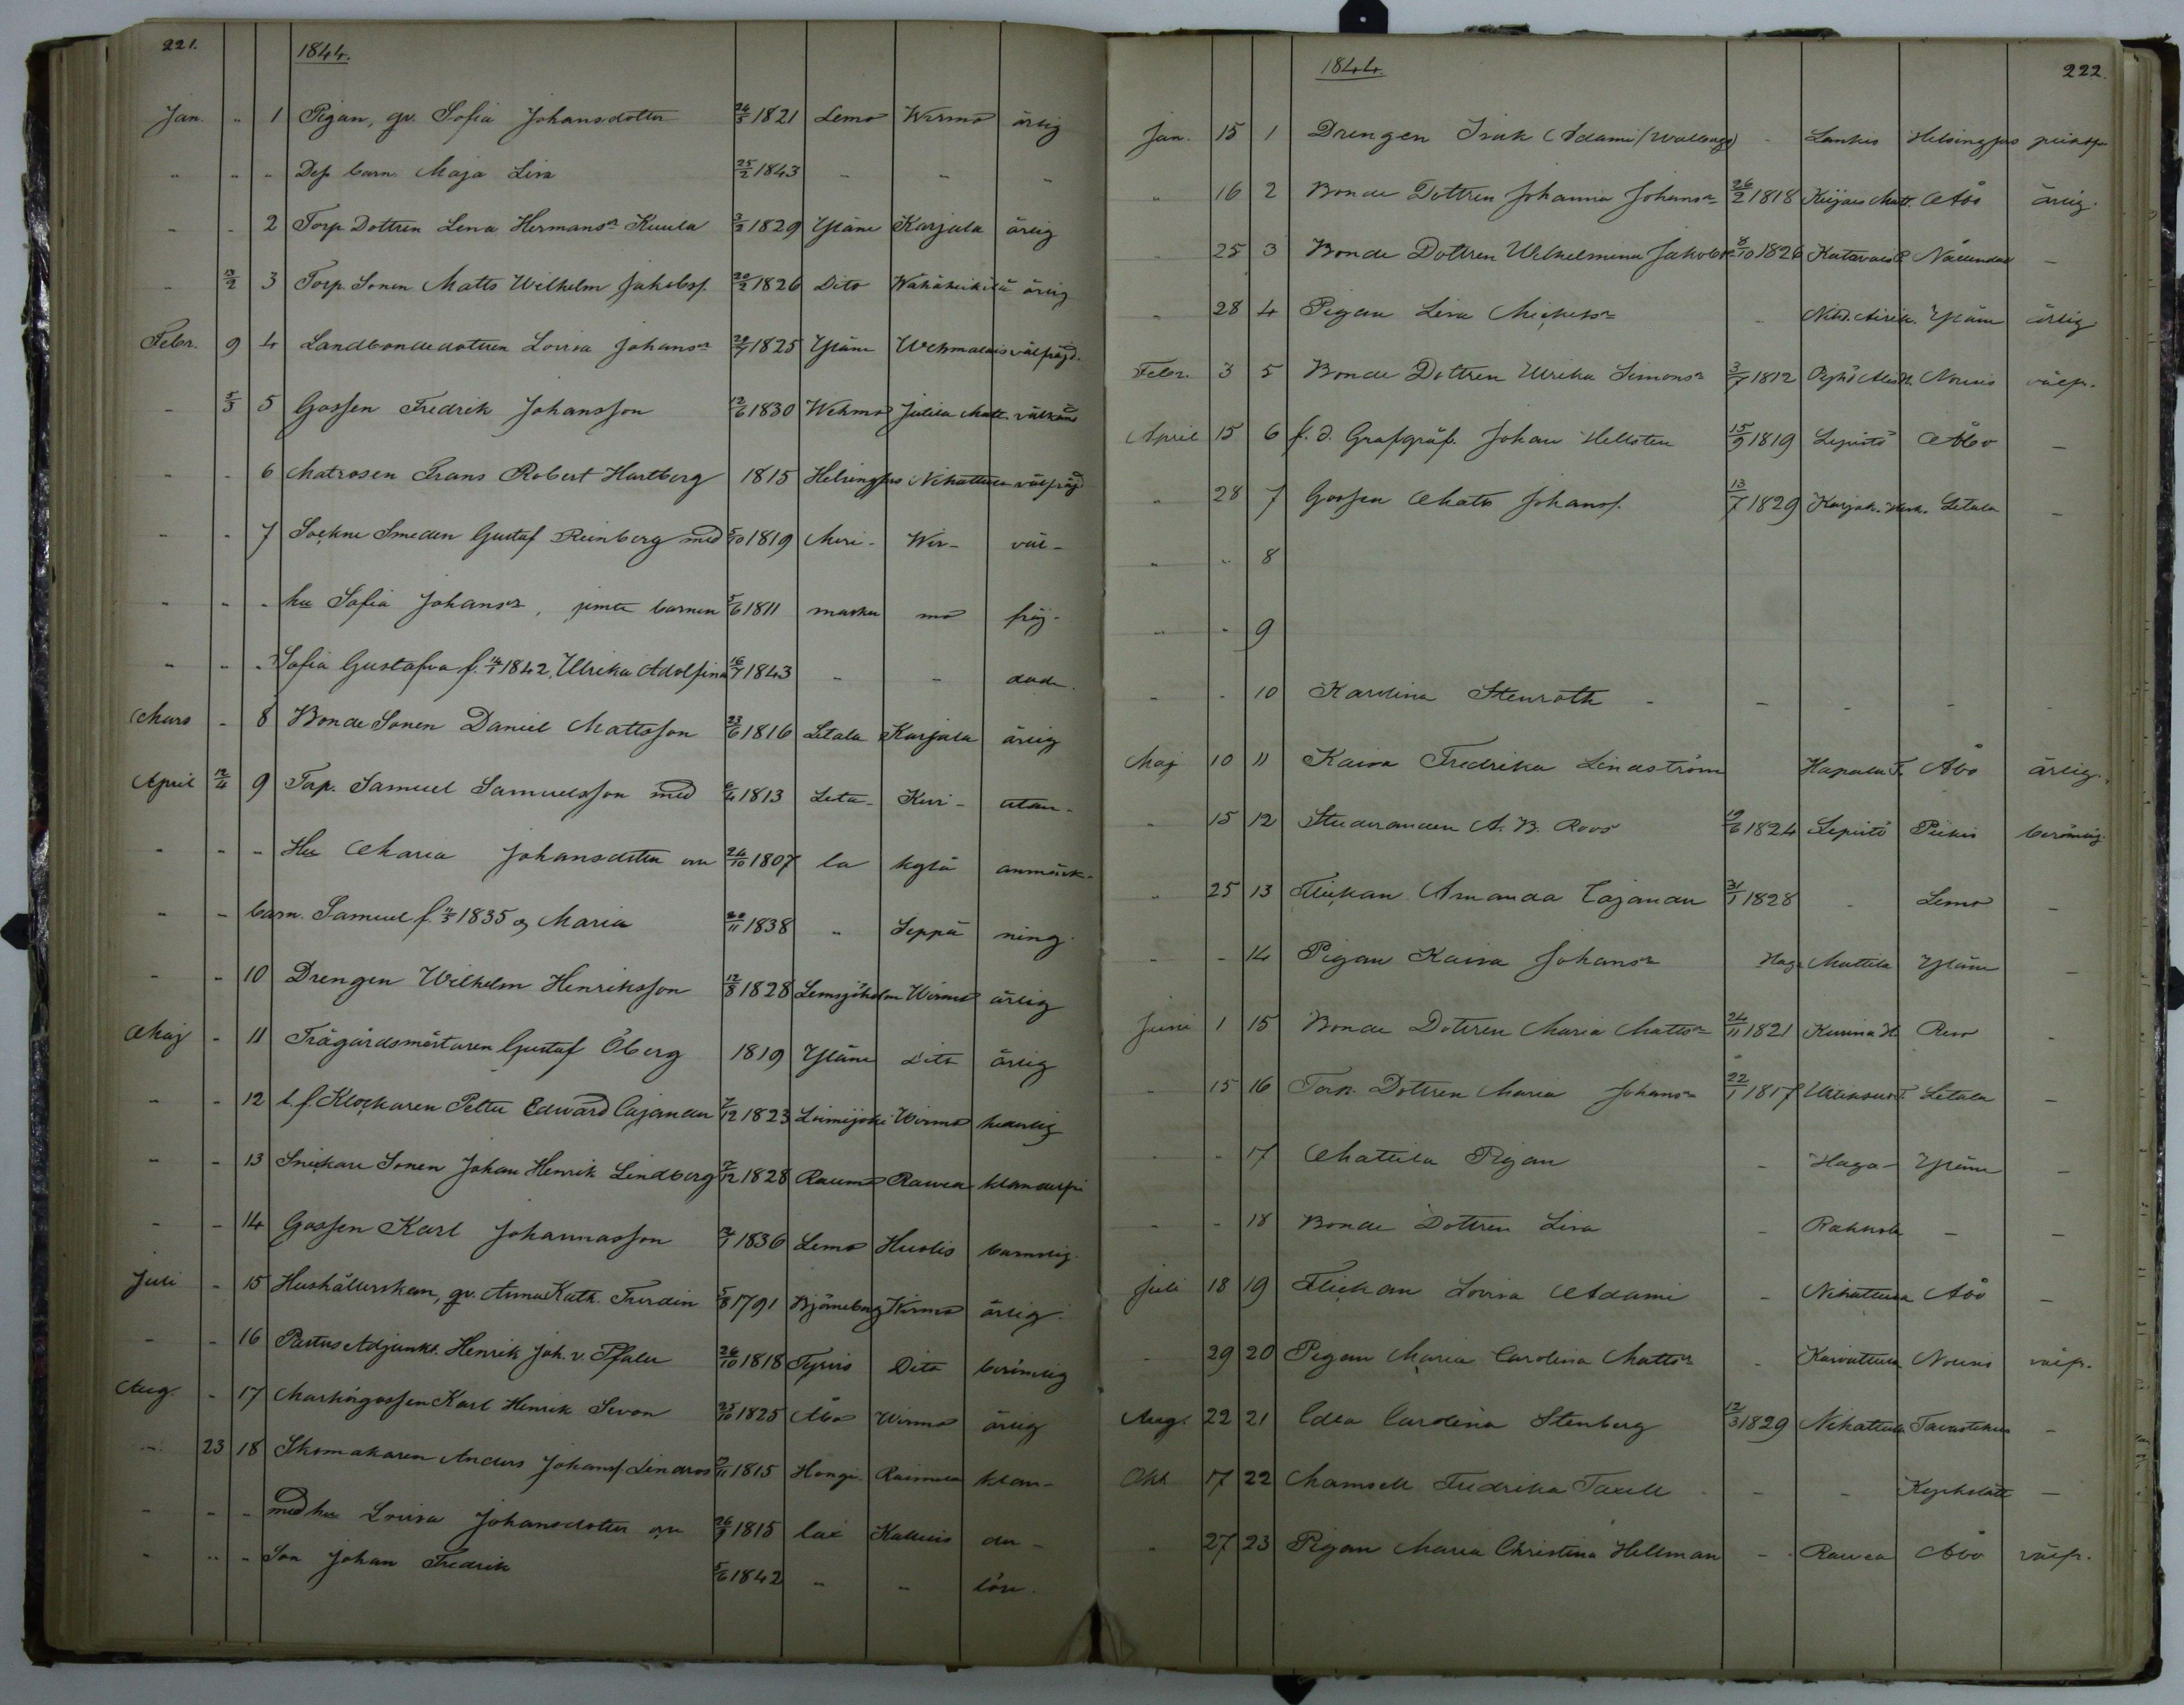 221.
1844.
Jan. " 1 Pigan, gv. Sofia Johansdotter 24/5 1821 Lemo Wirmo ärlig
" " " Dess barn Maja Lisa 25/2 1843 - - -
- - 2 Torp Dottren Lena Hermansr Kuula 3/2 1829 Yläne Karjala ärlig
- 13/2 3 Torp. Sonen Matts Wilhelm Jakobss. 20/2 1826 Dito ärlig
Febr. 9 4 Landbondedottren Lovisa Johansr 20/7 1825 Yläne Wehmalais välfräjd.
- 5/3 5 Gossen Fredrik Johansson 12/6 1830 Wehmo Jutila Matt. välkänd
- - 6 Matrosen Frans Robert Hartberg 1815 Helsingfors Nihattula välfräjd
- - 7 Sockne Smeden Gustaf Reinberg med 5/10 1819 Meri- Wir- väl-
- - - hu Sofia Johansr, jemte barnen 5/6 1811 masku mo fräj-
" " " Sofia Gustafva f. 14/1 1842, Ulrika Adolfina 16/7 1843 - - dade.
Mars - 8 Bonde Sonen Daniel Mattsson 23/6 1816 Letala Karjala ärlig
April 12/4 9 Torp. Samuel Samuelsson med 6/4 1813 Leta- Kur- utan-
" - - Hu Maria Johansdotter 24/10 1807 la kylä anmärk-
- - barn. Samuel f. 11/3 1835 o Maria 20/11 1838 " Seppä ning.
- - 10 Drengen Wilhelm Henriksson 12/8 1828 Lemsjöholm Wirmo ärlig
Maj - 11 Trägårdsmästaren Gustaf Öberg 1819 Yläne Dito ärlig
- - 12 t.f. Klockaren Petter Edward Cajander 7/12 1823 Loimijoki Wirmo hederlig
- - 13 Snickare Sonen Johan Henrik Lindberg 7/12 1828 Raumo Rauvea klanderfri
- - 14 Gossen Karl Johannasson 2/1 1836 Lemo Huolis barnslig.
Juli - 15 Hushållerskan, gv. Anna Kath. Turdin 5/8 1791 Björneborg Wirmo ärlig.
- - 16 Pastors Adjunkt. Henrik Joh. v. Pfaler 26/10 1818 Tyrvis Dito berömlig
Aug. - 17 Markörgossen Karl Henrik Sevon 25/10 1825 Åbo Wirmo ärlig
" 23 18 Skomakaren Anders Johanss Lindros 9/11 1815 Hongi- Raimela klan-
- - - med hu Lovisa Johansdotter 26/9 1815 lax Kalluis der-
- " - Son Johan Fredrik 5/6 1842 " " lös.
222.
1844.
Jan. 15 1 Drengen Isak (Adami/Wallberg) - Lankis Helsingfors
" 16 2 Bonde Dottren Johanna Johansr 26/2 1818 Kiijais Matt. Åbo ärlig.
25 3 Bonde Dottren Wilhelmina Jakobsr 8/10 1826 Nådendal -
" 28 4 Pigan Lisa Mickelsr - Yläne ärlig
Febr. 3 5 Bonde Dottren Ulrika Simonsr 3/7 1812 Nousis välfr.
April 15 6 f.d. Grafgräf. Johan Hellsten 15/9 1819 Lepistö Åbo -
" 28 7 Gossen Matts Johanss. 13/7 1829 Letala -
" " 8
" - 9
- - 10 Karolina Stenroth - - - - -
Maj 10 11 Kaisa Fredrika Lindström Hapala T. Åbo ärlig.
" 15 12 Studeranden A. B. Roos 19/6 1824 Lepistö Piikis berömlig
" 25 13 Flickan Amanda Cajander 31/1 1828 - Lemo -
- - 14 Pigan Kaisa Johansr Haga Mattila Yläne -
Juni 1 15 Bonde Dottren Maria Mattsr 24/11 1821 Reso -
- 15 16 Torp. Dottren Maria Johansr 22/1 1817 Letala -
- - 17 Mattila Pigan - Haga- Yläne -
- - 18 Bonde Dottren Lisa - Rahkola - -
Juli 18 19 Flickan Lovisa Adami - Nihattula Åbo -
- 29 20 Pigan Maria Carolina Mattsr - Karvattula Nousis välfr.
Aug. 22 21 Edla Carolina Stenberg 12/3 1829 Nihattula Tavastehus -
Okt. 17 22 Mamsell Fredrika Taxell - - - Kyrkslätt -
" 27 23 Pigan Maria Christina Hellman - - Rauvea Åbo välfr.